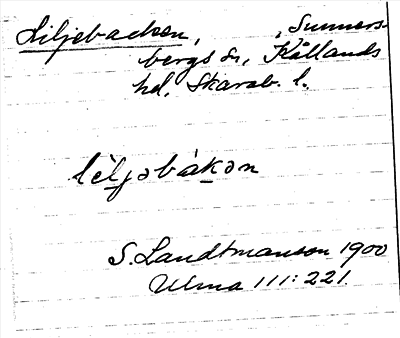 Liljebacken, , Sunners-
bergs sn, Kållands
hd, Skarab. l.
lìljəbákən
S. Landtmanson 1900
Ulma 111:221.